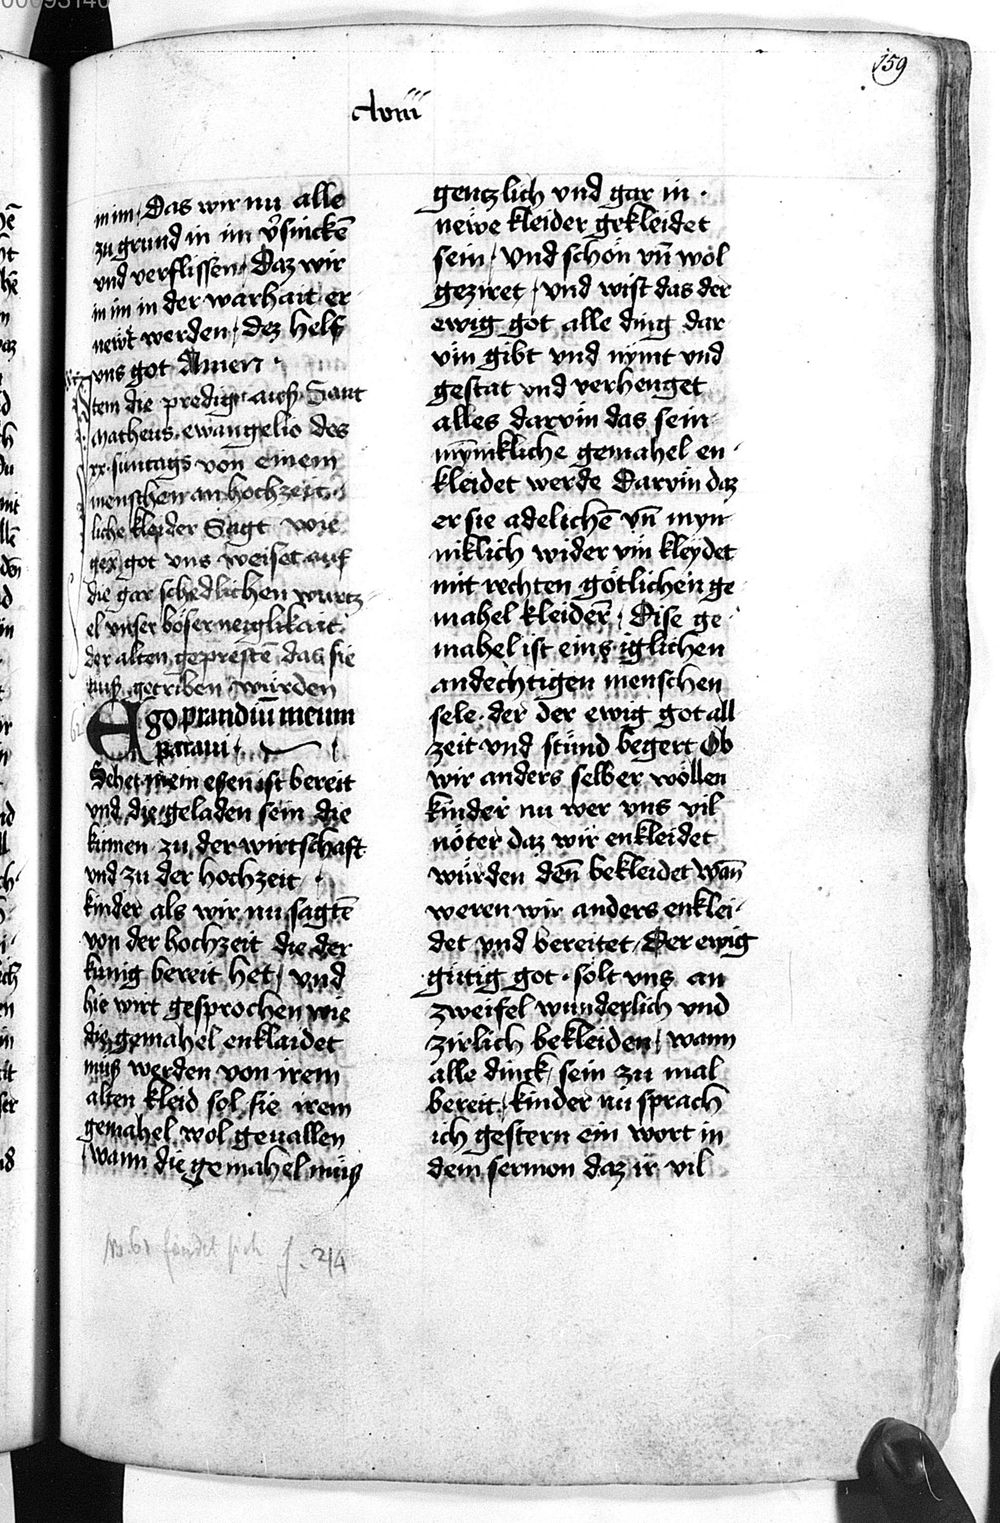 159
clviii
in im / Das wir nu alle
zu grund in im v̉sinckē
vnd verflissen / Daz wir
in im in der warhait er
newt werden / dez helf
vns got Amen
Item die predig auß Sant
Matheus ewangelio des
xx suntags von einem
menschen an hochzeit
liche kleyder Sagt wie
got vns weiset auf
die gar schedlichen wurtz
el vnser böser neiglikait
der alten geprestē das sie
auß getriben würden
Ego prandiū meum
paraui
Sehet mein essen ist bereit
vnd die geladen sein die
kumen zu der wirtschaft
vnd zu der hochzeit
kinder als wir nu sagtē
von der hochzeit die der
kunig bereit het / vnd
hie wirt gesprochen wie
die gemahel enklaidet
muß werden von irem
alten kleid sol sie irem
gemahel wol geuallen
/ wann die gemahel muß
gentzlich vnd gar in
newe kleider gekleidet
sein / Vnd schön vn̄ wol
geziret / vnd wist das der
ewig got alle ding dar
vm gibt vnd nymt vnd
gestat vnd verhenget
alles darvm das sein
mynnikliche gemahel en
kleidet werde Darvm daz
er sie adelichē vn̄ myn
niklich wider vm kleydet
mit rechten götlichen ge
mahel kleiderē / Dise ge
mahel ist eins iglichen
andechtigen menschen
sele der der ewig got all
zeit vnd stund begert Ob
wir anders selber wöllen
kinder nu wer vns vil
nöter daz wir enkleidet
würden den̄ bekleidet wan̄
weren wir anders enklei
det vnd bereitet / Der ewig
gütig got solt vns an
zweifel wunderlich vnd
zirlich bekleiden / wann
alle dinck sein zu mal
bereit / kinder nu sprach
ich gestern ein wort in
dem sermon daz ir vil
No 61 findet sich f. 214